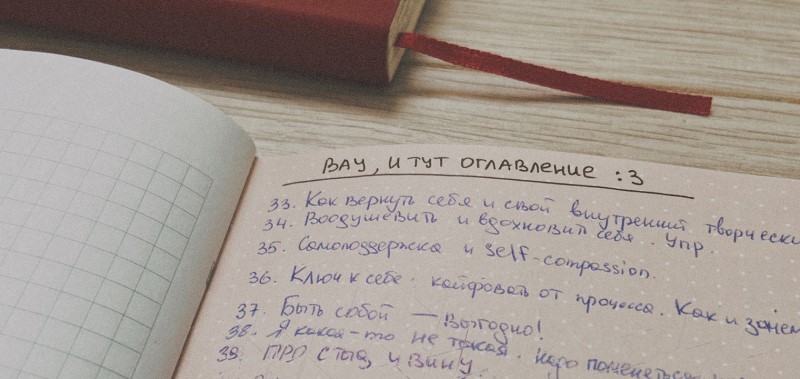 ВАУ, И ТУТ ОГЛАВЛЕНИЕ :3
33. Как вернуть себя и свой внутренний творчески
34. Воодушевить и вдохновить себя. Упр.
35. Самоподдержка и self-compassion.
36. Ключ к себе. кайфовать от процесса. Как и зачем
37. Быть собой — выгодно!
38. Я какая-то не такая. надо поменяться
39. ПРО стыд и вину